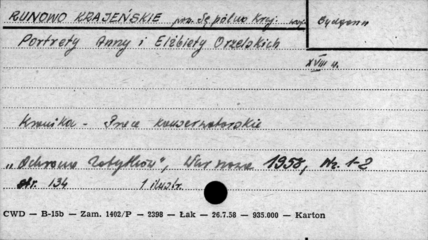 RUNOWO KRAJEŃSKIE pow. Sępólno Kraj. woj. Bydgoszcz
Portrety Anny i Elżbiety Orzelskich
XVIII w.
Kronika - Prace konserwatorskie
"Ochrona Zabytków", Warszawa 1958, Nr. 1-2
str. 134 1 ilustr.
CWD — B-15b — Zam. 1402/P — 2398 — Łak — 26.7.58 — 935.000 — Karton